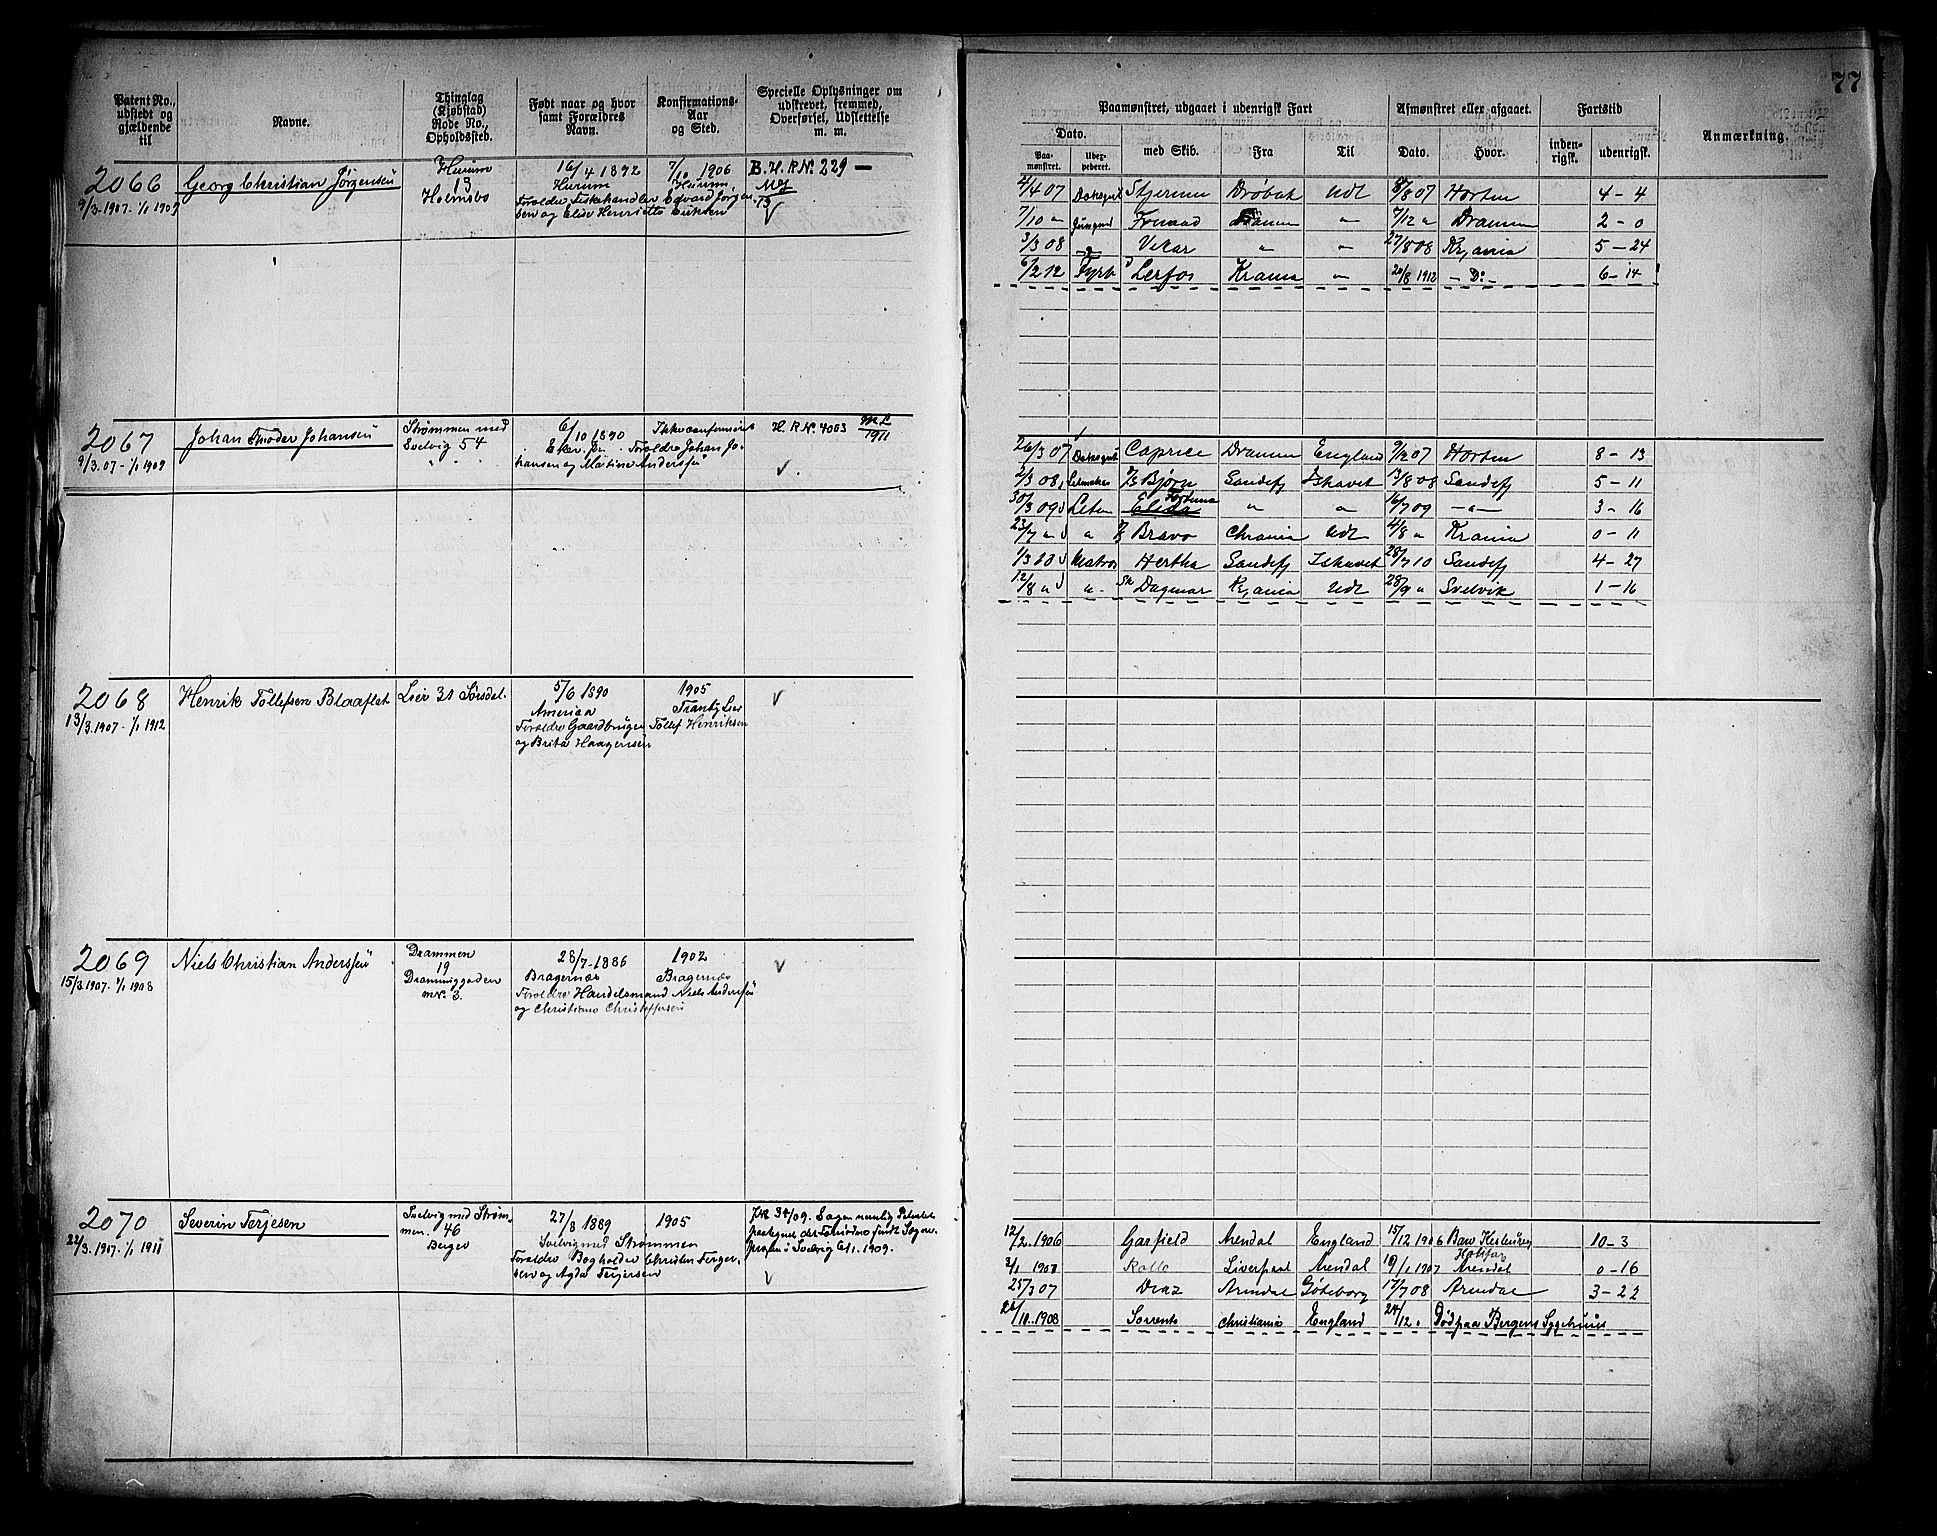 77
Patent No., udstedt og gjældende til
Navne.
Thinglag (Kjøbstad) Rode No., Opholdssted.
Født naar og hvor samt Forældres Navn.
Konfirmations-Aar og Sted.
Specielle Oplysninger om udskrevet, fremmed, Overførsel, Udslettelse m. m.
Paamønstret, udgaaet i udenrigsk Fart
Afmønstret eller afgaaet.
Fartstid
Anmærkning.
Dato.
Paa-mønstret.
med Skib.
Fra
Til
Dato.
Hvor.
inden-rigsk.
udenrigsk.
2066
9/3.1907-1/1 1909
Georg Christian Jørgensen
Hurum
13
Holmsbo
16/4 1892
Hurum
Forældre Fiskehandler Edvard Jørgen-
sen og Elise Henriette Eriksen
7/10 1906
Hurum
B. H. R No. 229 —
2/4 07 Stjernen Drøbak Udl 8/8 07 Horten 4 – 4
7/10 " Drammen " 7/12 " Drammen 2 – 0
3/3 08 Vikar " " 27/8 08 Kr.ania 5 – 24
6/2 12 Fyrb Lerfos Krania " 20/8 1912 – Do – 6 – 14
2067
9/3.07-1/1 1909
Johan Theodor Johansen
Strømmen med
Svelvig 54
6/10 1890
Eker.
Forældre Johan Jo-
hansen og Martine Andersen
Ikke confirmeret
H. R No. 4063
1911
26/3 07 Caprice Drammen England 9/12 07 Horten 8 – 13
2/3 08 Bjørn Sandefj Ishavet 13/8 08 Sandefj 5 – 11
30/3 09 Fortuna
Elida " " 16/7 09 – " – 3 – 16
23/7 " " Bravo Chrania Udl 4/8 " Krania 0 – 11
1/3 10 Matros Hertha Sandefj Ishavet 28/7 10 Sandefj 4 – 27
12/8 " " Sk Dagmar Kr.ania Udl 28/9 " Svelvik 1 – 16
2068
13/3.1907-1/1 1912
Henrik Tollefsen Blaaflat
Lier 31 Sørsdal
5/6 1890
Amerika
Forældre Gaardbruger Tollef Henriksen
og Brita Haagensen
1905
Tranby Lier
2069
15/3.1907-1/1 1908
Niels Christian Anderssen
Drammen
19
Dronninggaden
nr. 3.
28/7-1886
Bragernæs
Forældre Handelsmand Niels Andersen
og Christiane Christoffersen
1902
Bragernæs
2070
22/3.1907-1/1 1911
Severin Terjesen
Svelvig med Strøm-
men. 46
Berger
27/8 1889
Svelvig med Strømmen
Forældre Bogholder Christen Terger-
sen og Agda Terjersen
1905
12/2.1906 Garfield Arendal England 15/12 1906 10 – 3
2/1 1907 Rollo Liverpool Arendal 19/1 1907 Arendal 0 – 16
25/3 07 Draz Arendal Göteborg 17/7 08 Arendal 3 – 22
22/10.1908 Sorrento Christiania England 24/12. Død paa Bergens Sygehuus